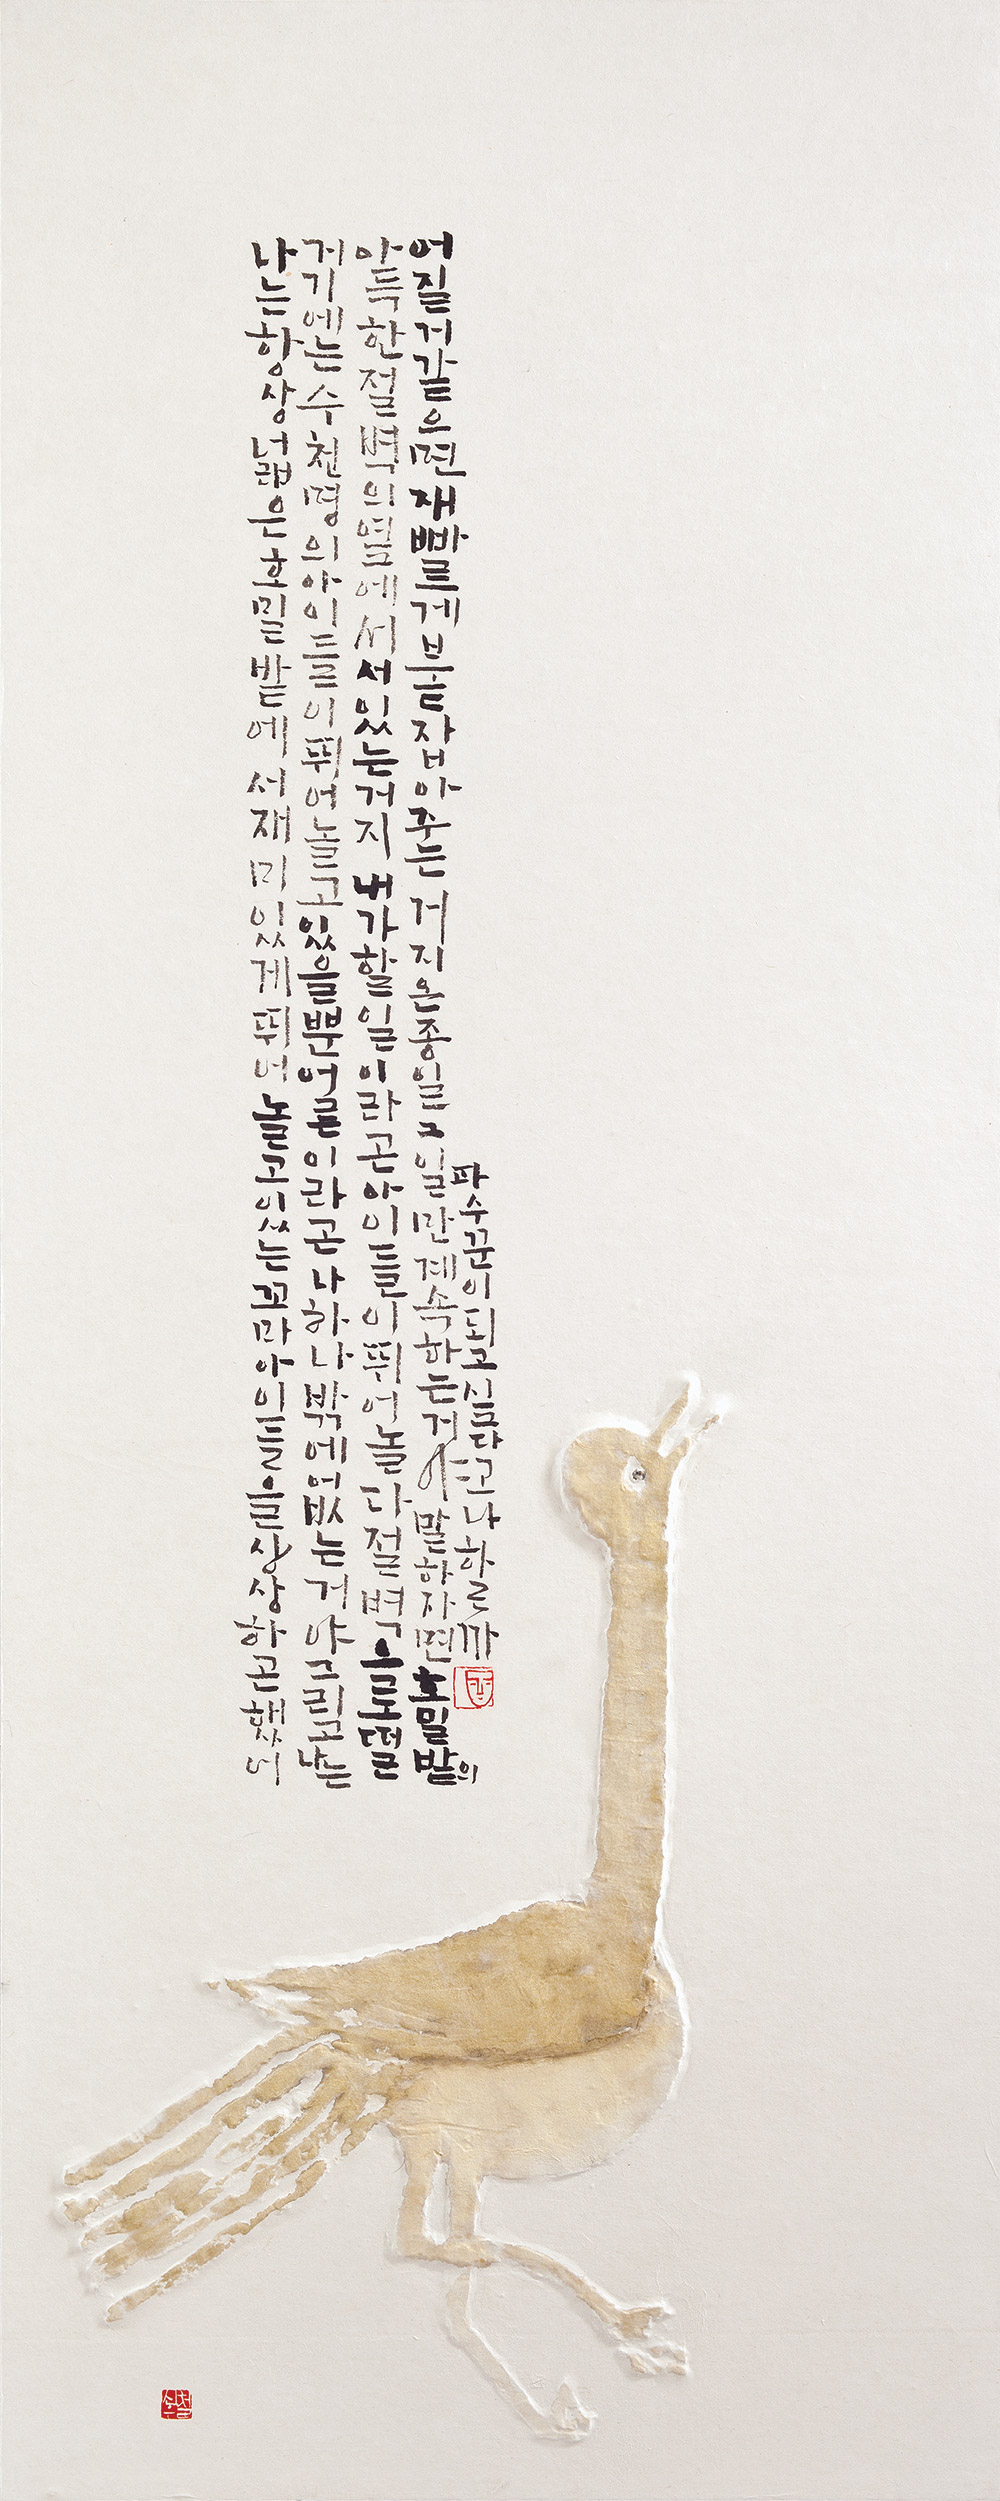 나는항상넓은호밀밭에서재미있게뛰어놀고있는꼬마아이들을상상하곤했어
거기에는수천명의아이들이뛰어놀고있을뿐어른이라곤나하나밖에없는거야그리고나는
아득한절벽의옆에서서있는거지내가할일이라곤아이들이뛰어놀다절벽으로떨
어질거같으면재빠르게붙잡아주는거지온종일그일만계속하는거야말하자면호밀밭의
파수꾼이되고싶다고나할까